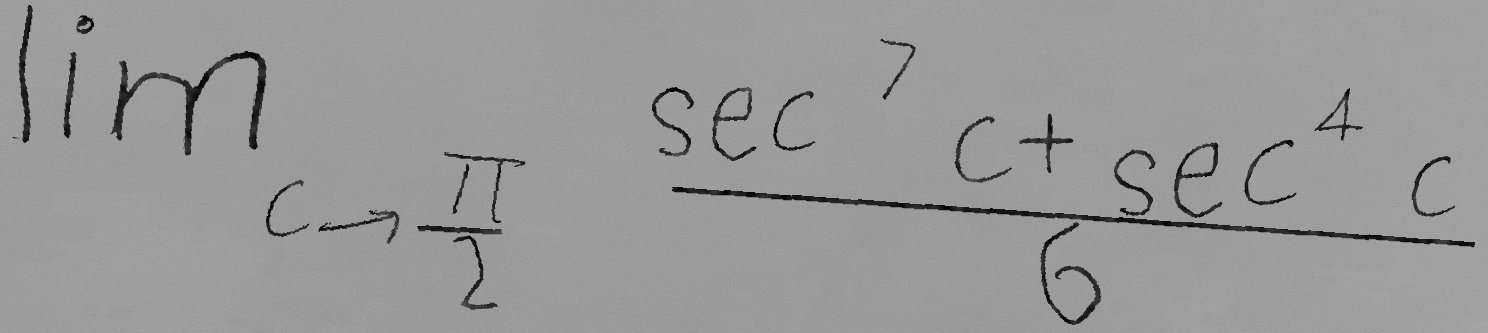 \lim_{c \to \frac{\pi}{2}} \frac{\sec^7 c + \sec^4 c}{6}